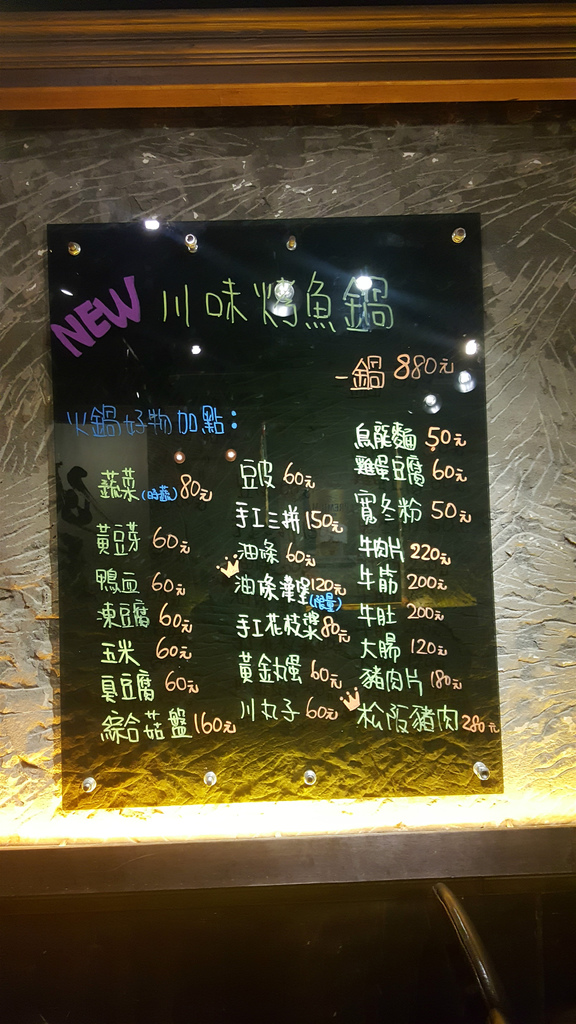 NEW 川味烤魚鍋
一鍋 880元
火鍋好物加點：
蔬菜(時蔬)80元
黃豆芽 60元
鴨血 60元
凍豆腐 60元
玉米 60元
臭豆腐 60元
綜合菇盤 160元
豆皮 60元
手工三拼 150元
油條 60元
油條 120元
(限量)
手工花枝漿 80元
黃金丸蛋 60元
川丸子 60元
烏龍麵 50元
雞蛋豆腐 60元
寬冬粉 50元
牛肉片 220元
牛筋 200元
牛肚 200元
大腸 120元
豬肉片 180元
松阪豬肉 280元